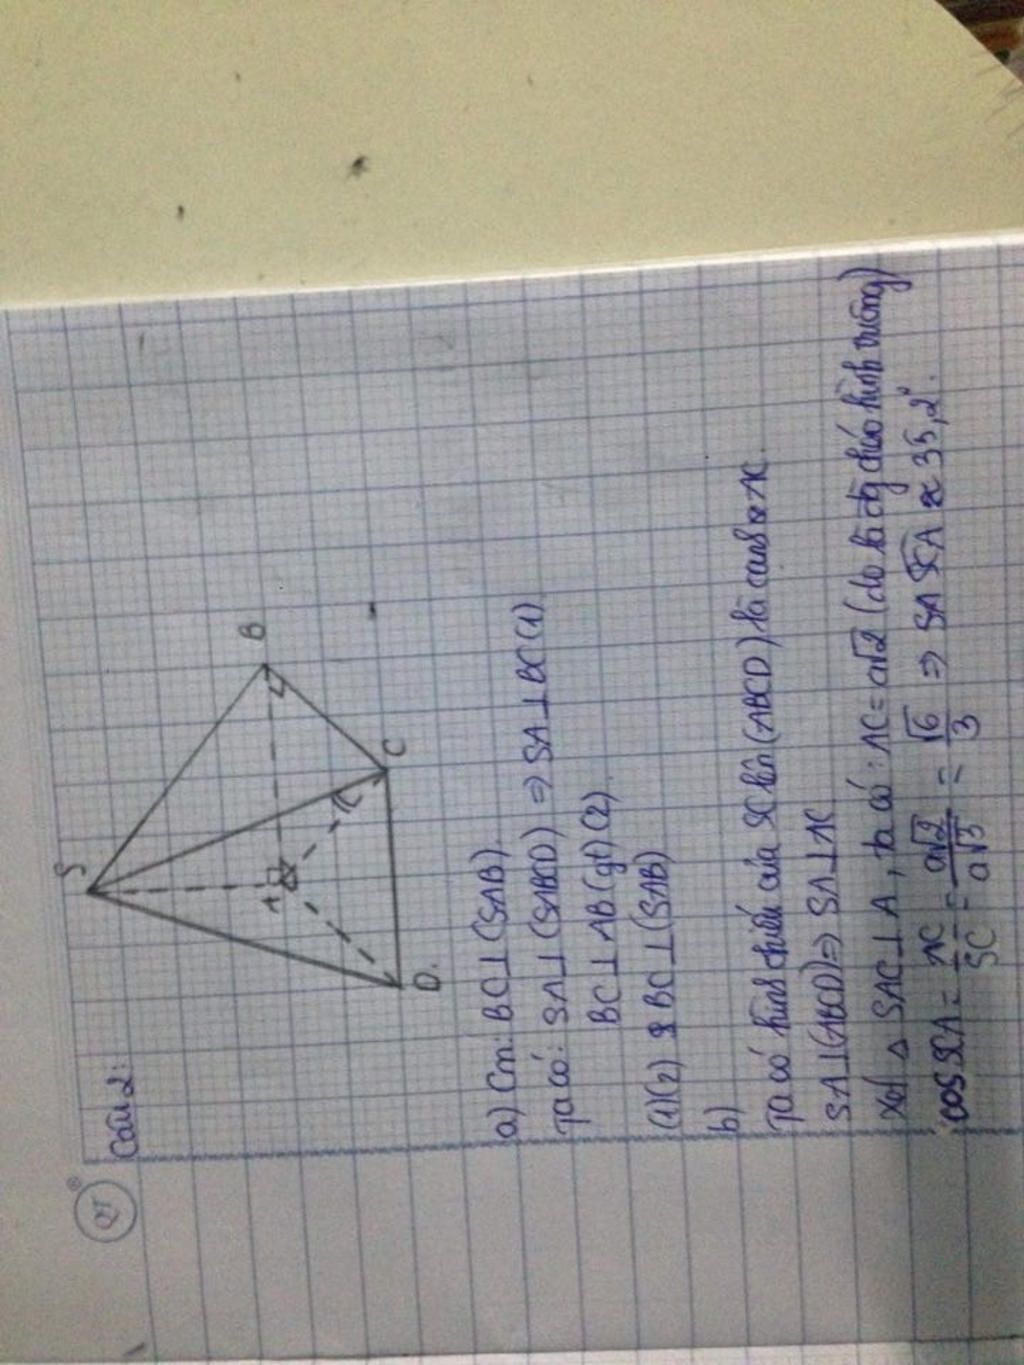 Câu 2:
S
A
B
C
D.
a) Cm: BC⊥(SAB)
Ta có: SA⊥(SABCD) ⇒ SA⊥BC (1)
BC⊥AB (gt) (2)
(1)(2) BC⊥(SAB)
b)
Ta có hình chiếu của SC lên (ABCD) là cạnh AC
SA⊥(ABCD) ⇒ SA⊥AC
Xét △ SAC⊥A, ta có: AC = a√2 (do là đg chéo hình vuông)
cos SCA = AC/SC = a√2/a√3 = √6/3 ⇒ SCA ≈ 35,2°.